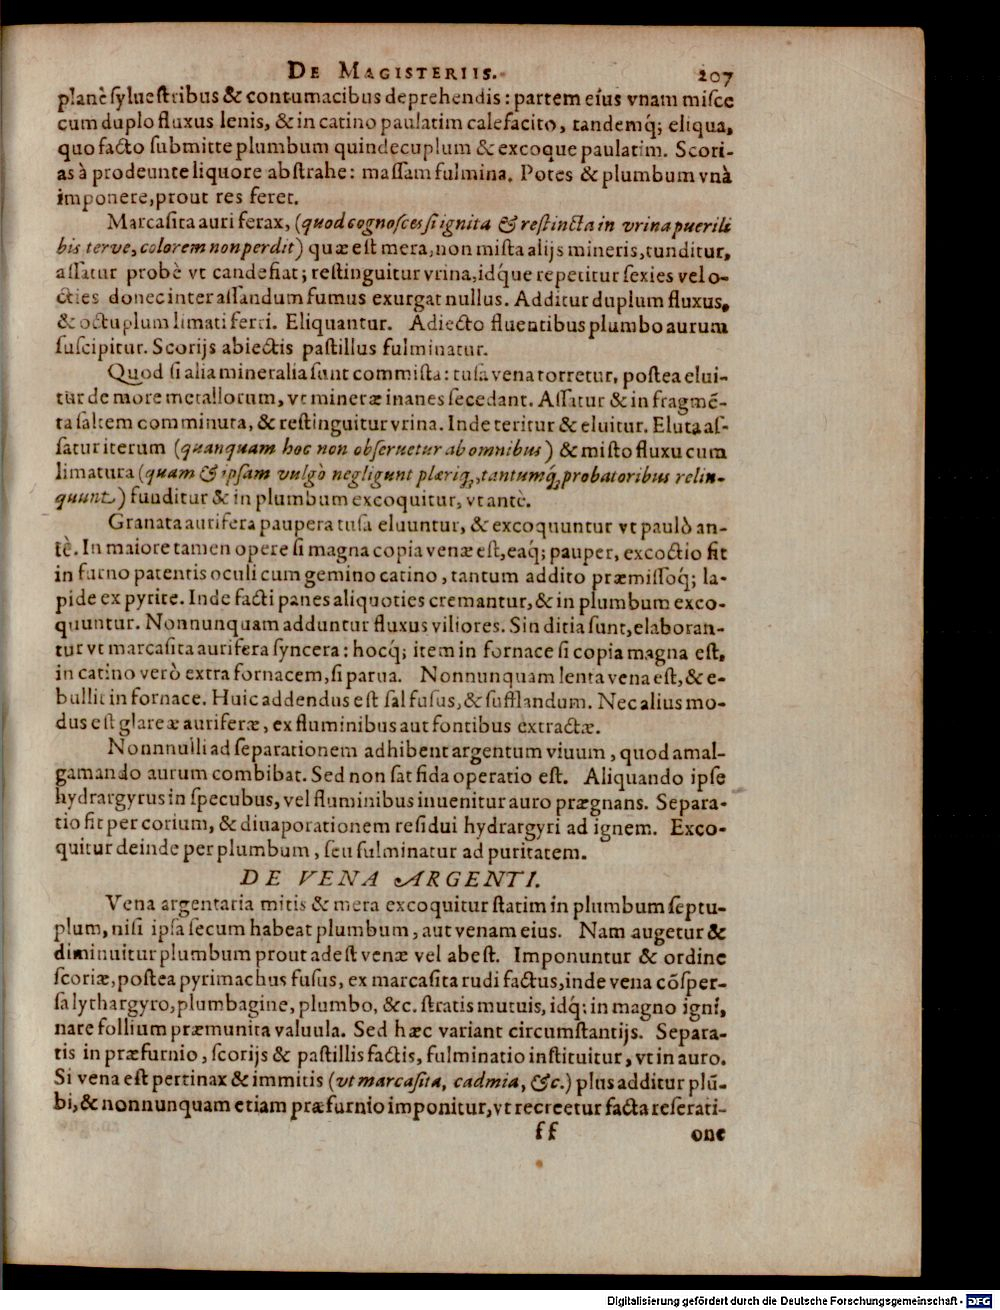 DE MAGISTERIIS. 207
planè syluestribus & contumacibus deprehendis: partem eius vnam misce
cum duplo fluxus lenis, & in catino paulatim calefacito, tandemq́; eliqua,
quo facto submitte plumbum quindecuplum & excoque paulatim. Scori-
as à prodeunte liquore abstrahe: massam fulmina. Potes & plumbum vnà
imponere, prout res feret.
Marcasita auri ferax, (quod cognosces si ignita & restincta in vrina puerili
bis terve, colorem non perdit) quæ est mera, non mista alijs mineris, tunditur,
assatur probè vt candefiat; restinguitur vrina, idq́ue repetitur sexies vel o-
cties donec inter assandum fumus exurgat nullus. Additur duplum fluxus,
& octuplum limati ferri. Eliquantur. Adiecto fluentibus plumbo aurum
suscipitur. Scorijs abiectis pastillus fulminatur.
Quod si alia mineralia sunt commista: tusa vena torretur, postea elui-
tur de more metallorum, vt mineræ inanes secedant. Assatur & in fragmẽ-
ta saltem comminuta, & restinguitur vrina. Inde teritur & eluitur. Eluta as-
satur iterum (quanquam hoc non obseruetur ab omnibus) & misto fluxu cum
limatura (quam & ipsam vulgò negligunt pleriq;, tantumq́; probatoribus relin-
quunt) funditur & in plumbum excoquitur, vt antè.
Granata aurifera paupera tusa eluuntur, & excoquuntur vt paulò an-
tè. In maiore tamen opere si magna copia venæ est, eaq́; pauper, excoctio fit
in furno patentis oculi cum gemino catino, tantum addito præmissoq́; la-
pide ex pyrite. Inde facti panes aliquoties cremantur, & in plumbum exco-
quuntur. Nonnunquam adduntur fluxus viliores. Sin ditia sunt, elaboran-
tur vt marcasita aurifera syncera: hocq́; item in fornace si copia magna est,
in catino verò extra fornacem, si parua. Nonnunquam lenta vena est, & e-
bullit in fornace. Huic addendus est sal fusus, & sufflandum. Nec alius mo-
dus est glareæ auriferæ, ex fluminibus aut fontibus extractæ.
Nonnnulli ad separationem adhibent argentum viuum, quod amal-
gamando aurum combibat. Sed non sat fida operatio est. Aliquando ipse
hydrargyrus in specubus, vel fluminibus inuenitur auro prægnans. Separa-
tio fit per corium, & diuaporationem residui hydrargyri ad ignem. Exco-
quitur deinde per plumbum, seu fulminatur ad puritatem.
DE VENA ARGENTI.
Vena argentaria mitis & mera excoquitur statim in plumbum septu-
plum, nisi ipsa secum habeat plumbum, aut venam eius. Nam augetur &
diminuitur plumbum prout adest venæ vel abest. Imponuntur & ordine
scoriæ, postea pyrimachus fusus, ex marcasita rudi factus, inde vena cõsper-
sa lythargyro, plumbagine, plumbo, &c. stratis mutuis, idq́; in magno igni,
nare follium præmunita valuula. Sed hæc variant circumstantijs. Separa-
tis in præfurnio, scorijs & pastillis factis, fulminatio instituitur, vt in auro.
Si vena est pertinax & immitis (vt marcasita, cadmia, &c.) plus additur plũ-
bi, & nonnunquam etiam præfurnio imponitur, vt recreetur facta reserati-
ff one
Digitalisierung gefördert durch die Deutsche Forschungsgemeinschaft - DFG